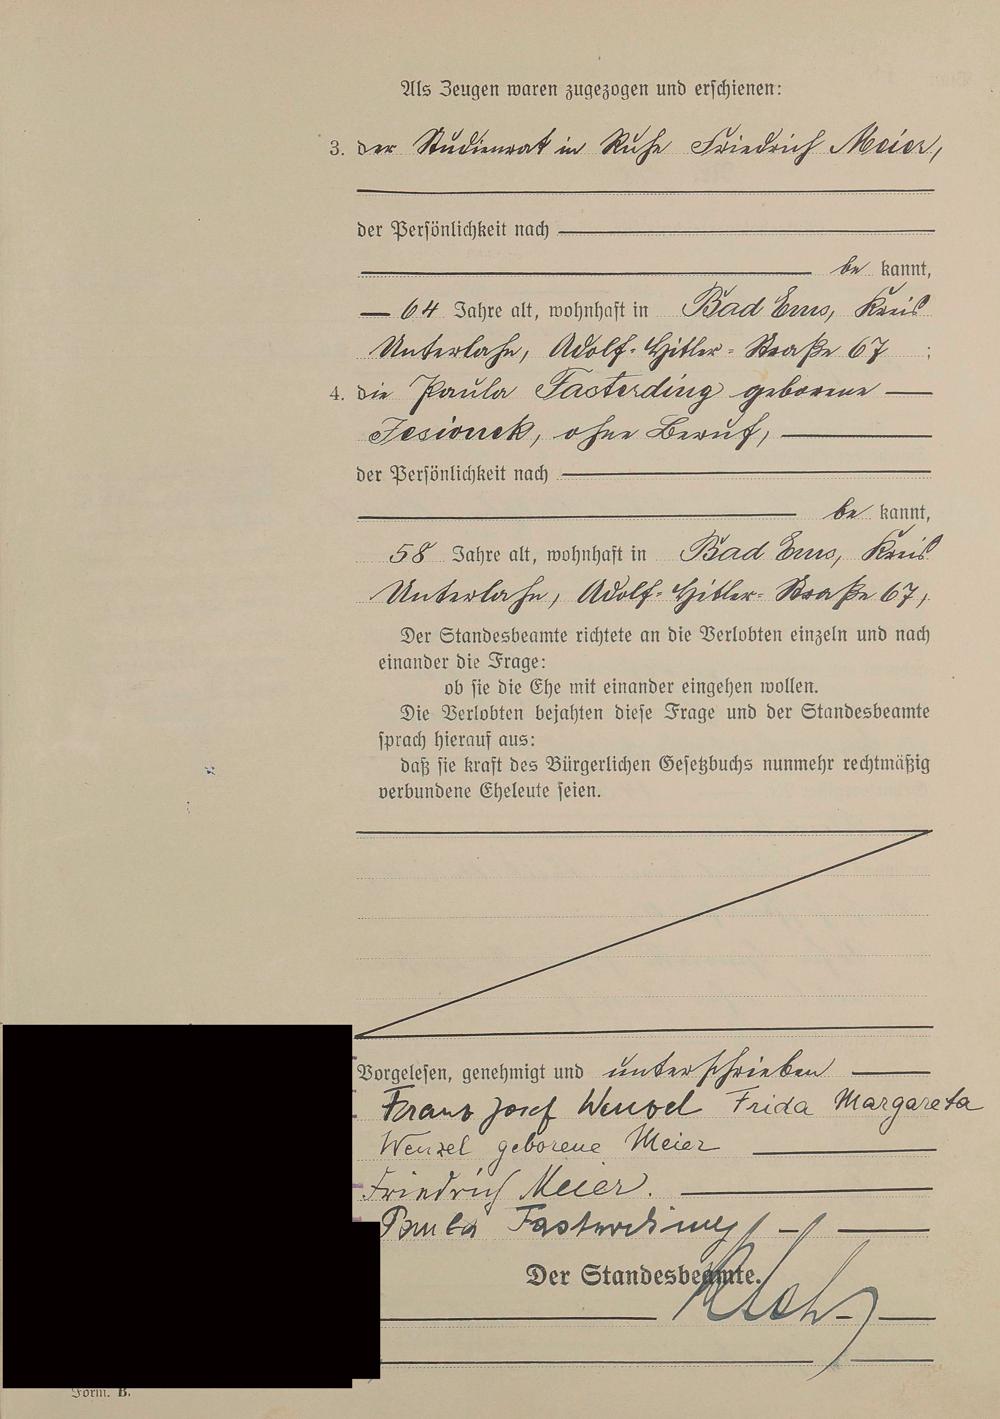 Als Zeugen waren zugezogen und erschienen:
3. der Studienrat in Ruhe Friedrich Meier,
der Persönlichkeit nach
be kannt,
64 Jahre alt, wohnhaft in Bad Ems, Kreis
Unterlahn, Adolf-Hitler-Straße 67 ;
4. die Paula Fasterding geborene
Jesionek, ohne Beruf,
der Persönlichkeit nach
be kannt,
58 Jahre alt, wohnhaft in Bad Ems, Kreis
Unterlahn, Adolf-Hitler-Straße 67,
Der Standesbeamte richtete an die Verlobten einzeln und nach
einander die Frage:
ob sie die Ehe mit einander eingehen wollen.
Die Verlobten bejahten diese Frage und der Standesbeamte
sprach hierauf aus:
daß sie kraft des Bürgerlichen Gesetzbuchs nunmehr rechtmäßig
verbundene Eheleute seien.
Vorgelesen, genehmigt und unterschrieben
Franz Josef Wenzel Frida Margareta
Wenzel geborene Meier
Friedrich Meier.
Paula Fasterding
Der Standesbeamte.
Form. B.